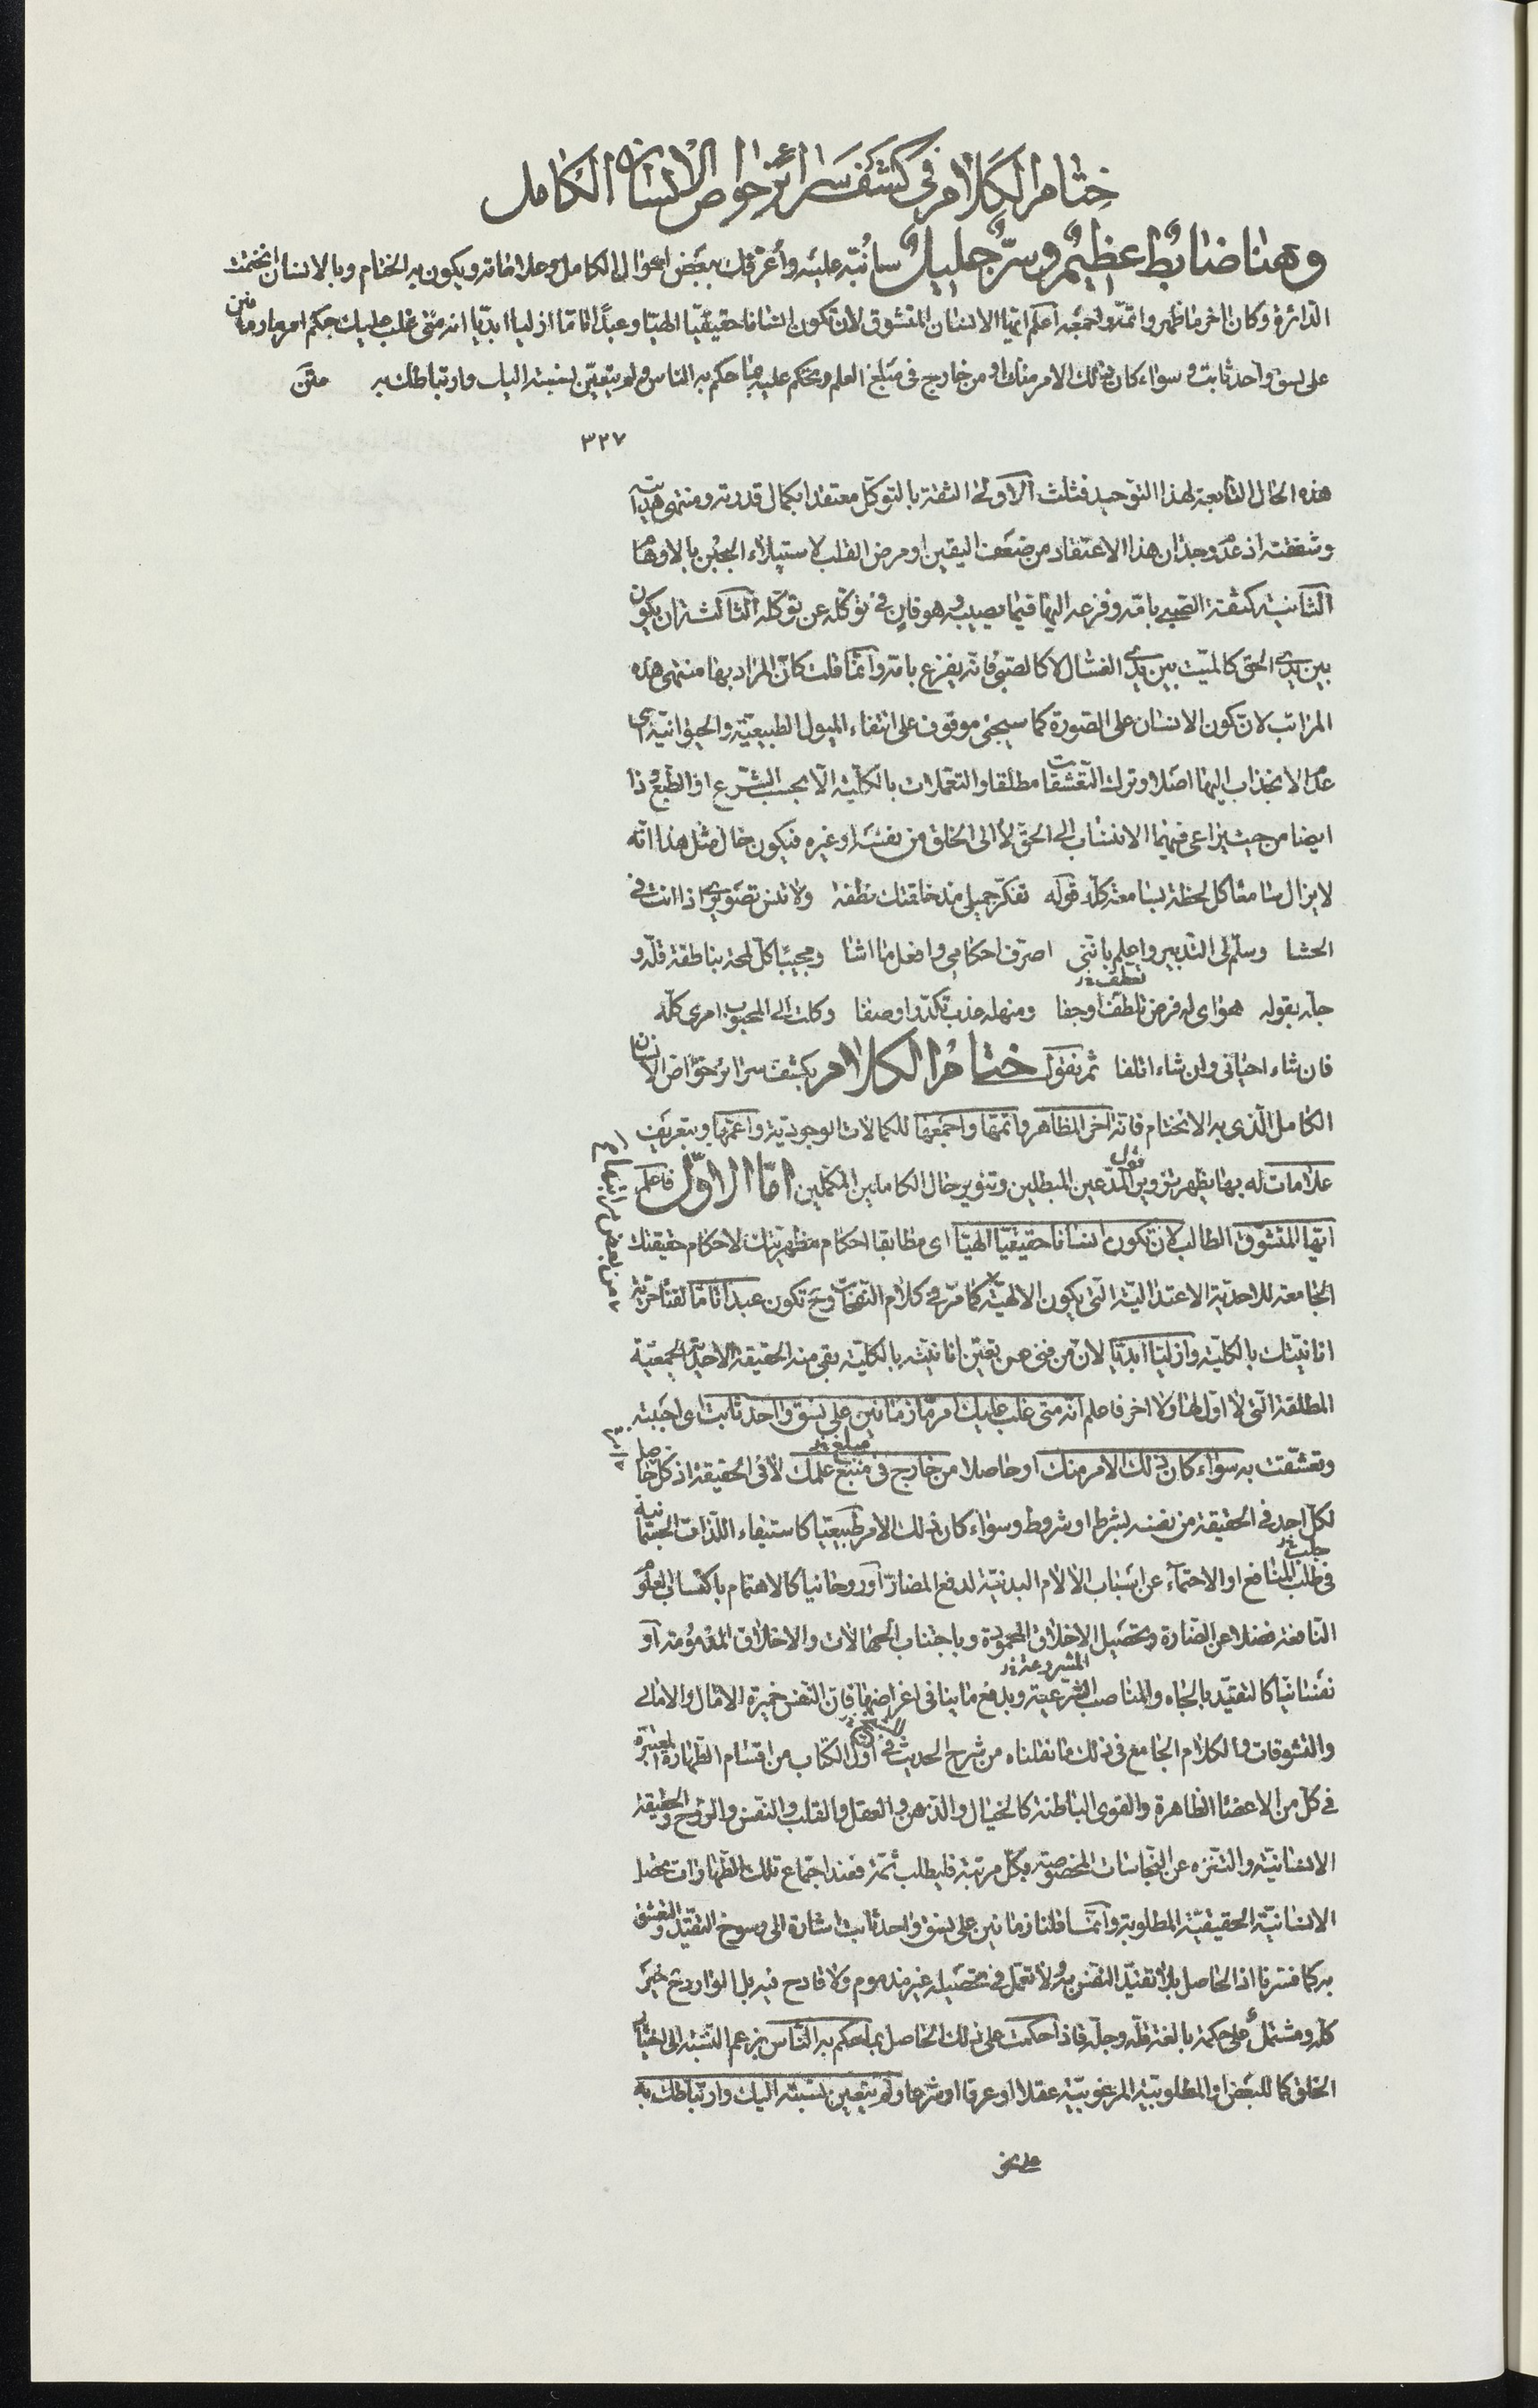 ختام الكلام في كشف سرائر خواص الانسان الكامل
وهنا ضابط عظيم وسر جليل سانبه عليه واعرفك ببعض احوال الكامل وعلاماته ويكون به الختام وبالانسان انختمت
الدائرة وكان اخر ما ظهر واتمه واجمعه اعلم ايها الانسان المتشوق لان تكون انسانا حقيقيا الهيا وعبدا تاما ازليا ابديا انه متى غلب عليك حكم امر ما زمانين
على نسق واحد ثابت وسواء كان ذلك الامر منك او من خارج في مبلغ العلم ويحكم عليه بما حكم به الناس ولم يتعين لنسبته اليك وارتباطك به متن
٣٢٧
هذه الحال التابعة لهذا التوحيد فثلث الاولى الثقة بالتوكل معتقدا بكمال قدرته ومنتهى هدايته
وشفقته اذ عدم وجدان هذا الاعتقاد من ضعف اليقين او مرض القلب لاستيلاء الجبن بالاوهام
الثانية كثقة الصبي بامه وفزعه اليها فيما يصيبه وهو فان في توكله عن توكله الثالثة ان يكون
بين يدي الحق كالميت بين يدي الغسال لا كالصبي فانه يفزع بامه وانما قلت كان المراد بها منتهى هذه
المراتب لان كون الانسان على الصورة كما سيجئ موقوف على انتفاء الميول الطبيعية والحيوانية اى
عدم الانجذاب اليها اصلا وترك التعشقات مطلقا والتعملات بالكلية الا بحسب الشرع او الطبع وذا
ايضا من حيث يراعى فيهما الانتساب الى الحق لا الى الخلق من نفسه او غيره فيكون حال مثل هذا انه
لا يزال سامعا كل لحظة بسامعة كله قوله تفكر جميلى مذ خلقتك نطفة ولا تنس تصويرى اذا انت في
الحشا وسلم لى التدبير واعلم باننى اصرف احكامي وافعل ما اشا ومجيبا كل لمحة بناطقة قله و
جله بقوله هواى له فرض تلطف او جفا ومنهله عذب تكدر او صفا وكلت الى المحبوب امرى كله
تعطف خ
فان شاء احيانى وان شاء اتلفا ثم نقول ختام الكلام بكشف سرائر خواص الانسان
الكامل الذى به الانختام فانه اخر المظاهر واتمها واجمعها للكمالات الوجودية واعمها وبتعريف
علامات له بها يظهر تزوير المدعين المبطلين وتنوير حال الكاملين المكملين اما الاول فاعلم
ايها المتشوق الطالب لان تكون انسانا حقيقيا الهيا اى مطابقا احكام مظهريتك لاحكام حقيقتك
الجامعة للاحدية الاعتدالية التى يكون الالهية كما مر في كلام النفحات وح تكون عبدا تاما لفناء حرية
انانيتك بالكلية وازليا ابديا لان من فنى عن تعين انانيته بالكلية بقى منه الحقيقة الاحدية الجمعية
المطلقة التى لا اول لها ولا اخر فاعلم انه متى غلب عليك امر ما زمانين على نسق واحد ثابت اى احببته
وتعشقت به سواء كان ذلك الامر منك او حاصلا من خارج في منبع علمك لا في الحقيقة اذ كل حاصل
مبلغ خ
لكل احد في الحقيقة من نفسه بشرط او شروط وسواء كان ذلك الامر طبيعيا كاستيفاء اللذات الجسمانية
في طلب المنافع او الاحتماء عن اسباب الالام البدنية لدفع المضار او روحانيا كالاهتمام باكتساب العلوم
جلب خ
النافعة فضلا عن الضارة وتحصيل الاخلاق المحمودة وباجتناب الجهالات والاخلاق المذمومة او
نفسانيا كالتقيد بالجاه والمناصب الشرعية وبدفع ما ينافى اغراضها فان النفس خميرة الامال والامانى
المشروعة خ
والتشوقات والكلام الجامع في ذلك ما نقلناه من شرح الحديث في اول الكتاب من اقسام الطهارة المعتبرة
في كل من الاعضاء الظاهرة والقوى الباطنة كالخيال والذهن والعقل والقلب والنفس والروح والحقيقة
الانسانية والتنزه عن النجاسات المخصوصة بكل مرتبة فليطلب ثمة فعند اجتماع تلك الطهارات تحصل
الانسانية الحقيقية المطلوبة وانما قلنا زمانين على نسق واحد ثابت اشارة الى رسوخ التقيد والتعشق
به كما فسرنا اذ الحاصل بلا تقيد النفس به ولا تعمل في تحصيله غير مذموم ولا قادح فيه بل الوارد ح خير
كله ومشتمل على حكمة بالغة قله وجله فاذا حكمت على ذلك الحاصل بما حكم به الناس بزعم النسبة الى اختيار
الخلق كما للبعض او المطلوبية المرغوبية عقلا او عرفا او شرعا ولم يتعين نسبته اليك وارتباطك به
على نحو